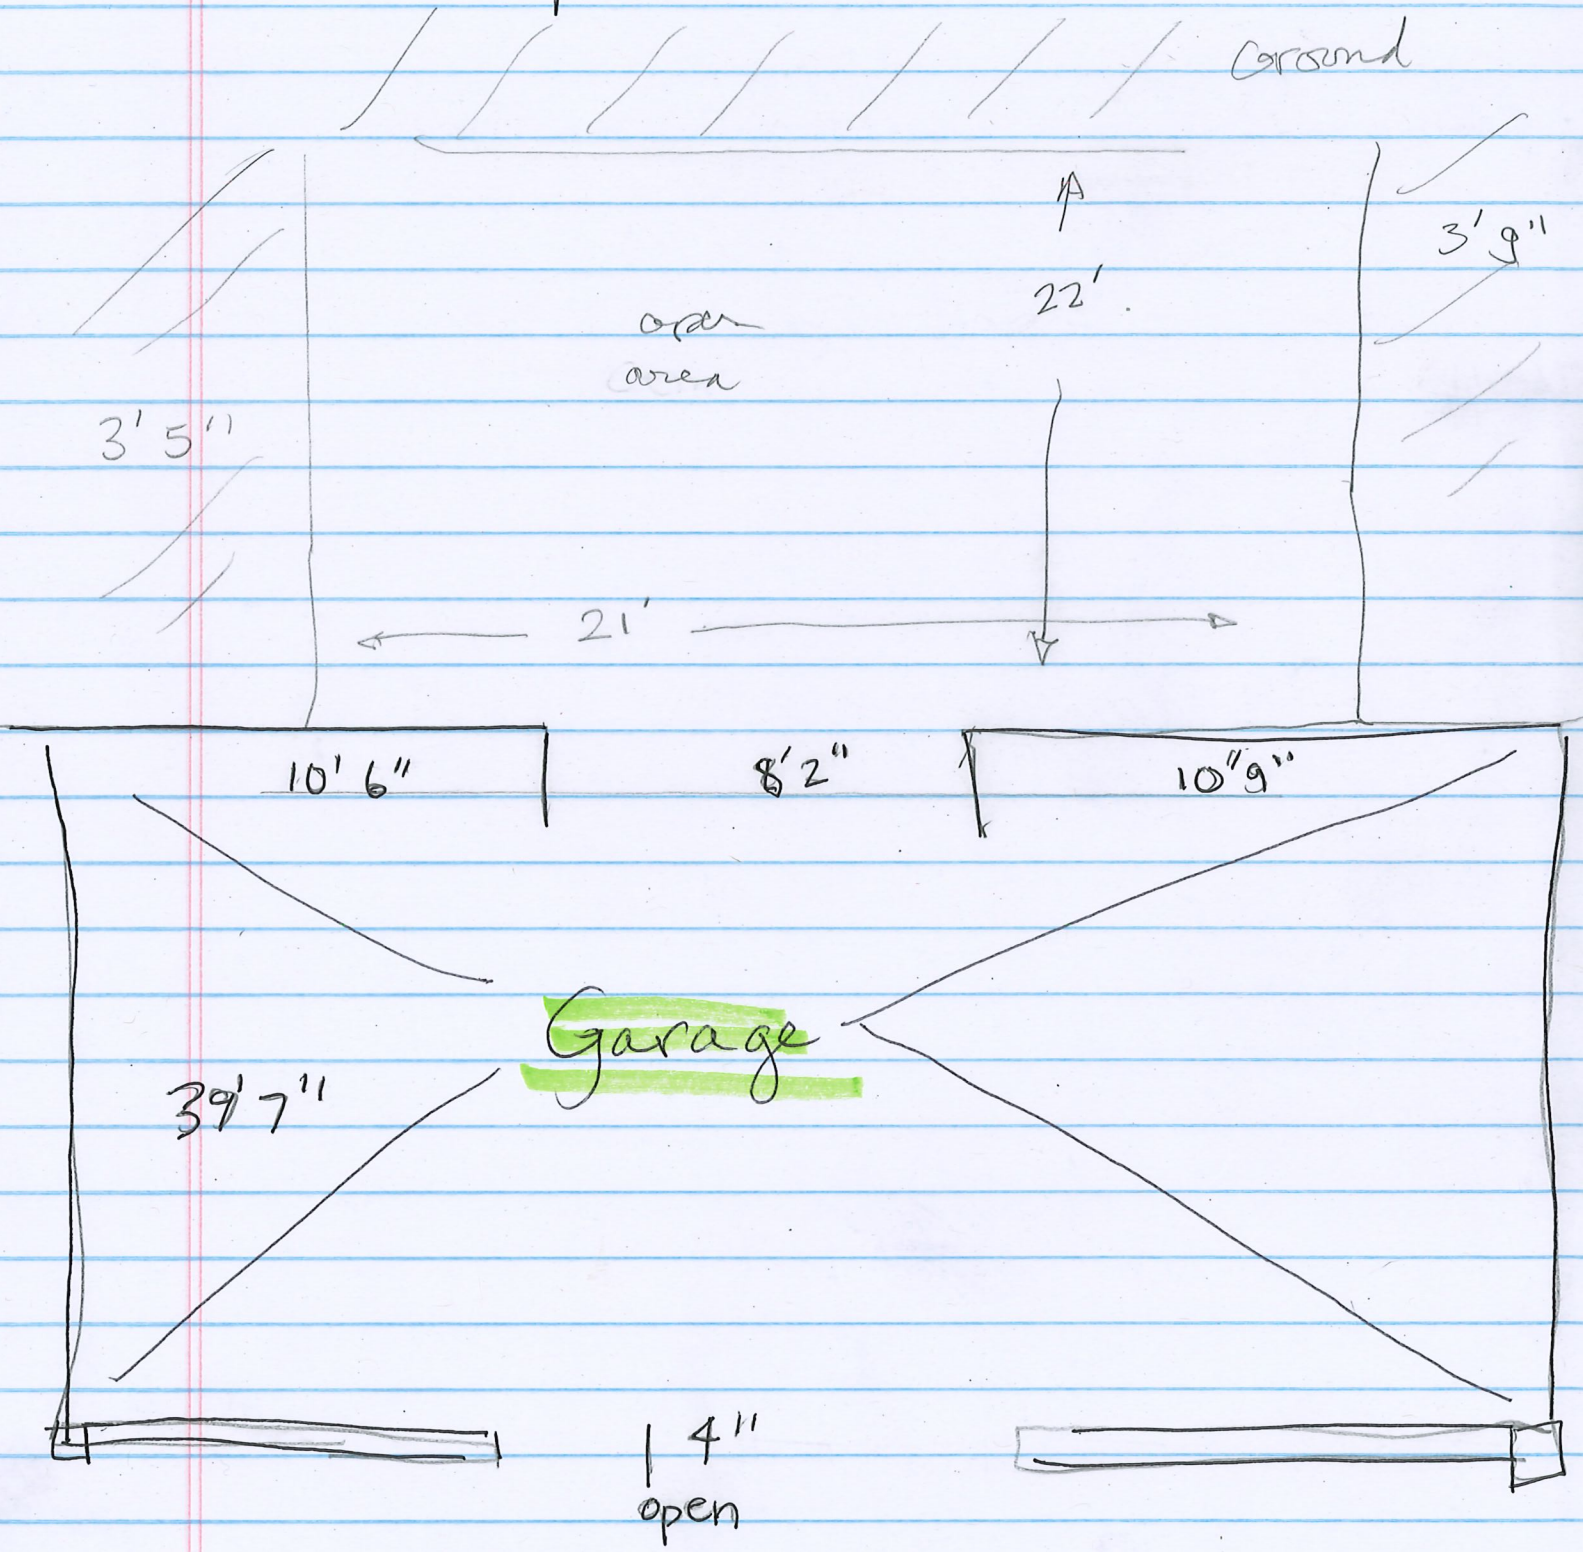 Ground
3' 9"
22'
open
area
3' 5"
21'
10' 6" 8' 2" 10" 9"
Garage
39' 7"
4"
open